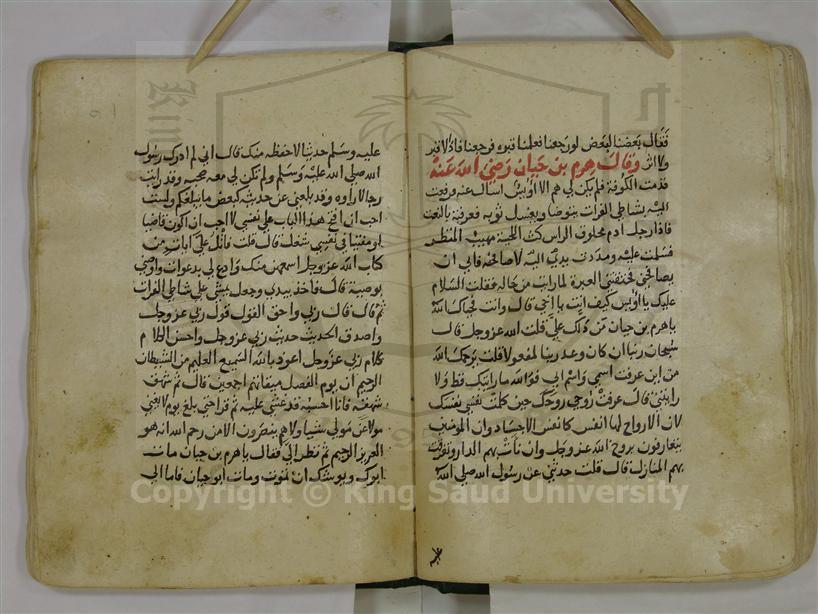 فقال بعضنا لبعض لو رجعنا فعلمنا قبره فرجعنا فاذا لا قبر
ولا اثر وقال هرم بن حيان رضي الله عنه
قدمت الكوفة فلم يكن لي هم الا اويس اسال عنه فدفعت
اليه بشاطي الفرات يتوضا ويغسل ثوبه فعرفته بالنعت
فاذا رجل ادم محلوق الراس كث اللحية مهيب المنظر
فسلمت عليه ومددت يدي اليه لاصافحه فابى ان
يصافحني فخنقتني العبرة لما رايت من حاله فقلت السلام
عليك يا اويس كيف انت يا اخي قال وانت فحياك الله
يا هرم بن حيان من دلك علي قلت الله عز وجل قال
سبحان ربنا ان كان وعد ربنا لمفعولا قلت يرحمك الله
من اين عرفت اسمي واسم ابي فوالله ما رايتك قط ولا
رايتني قال عرفت روحي روحك حين كلمت نفسي نفسك
لان الارواح لها انفس كانفس الاجساد وان المومنين
يتعارفون بروح الله عز وجل وان نات بهم الدار وتفرقت
بهم المنازل قال قلت حدثني عن رسول الله صلى الله
عليه
عليه وسلم حديثا لاحفظه منك قال اني لم ادرك رسول
الله صلى الله عليه وسلم ولم تكن لي معه صحبه وقد رايت
رجالا راوه وقد بلغني عن حديثه كبعض ما بلغكم ولست
احب ان افتح هذا الباب على نفسي لا احب ان اكون قاضيا
او مفتيا في نفسي شغل قال قلت فاتل علي ايات من
كتاب الله عز وجل اسمعهن منك وادع لي بدعوات واوصني
بوصية قال فاخذ بيدي وجعل يمشي على شاطي الفرات
ثم قال قال ربي واحق القول قول ربي عز وجل
واصدق الحديث حديث ربي عز وجل واحسن الكلام
كلام ربي عز وجل اعوذ بالله السميع العليم من الشيطان
الرجيم ان يوم الفصل ميقاتهم اجمعين قال ثم شهق
شهقه فانا احسبه قد غشي عليه ثم قرا حتى بلغ يوم لا يغني
مولا عن مولى شيا ولا هم ينصرون الا من رحم الله انه هو
العزيز الرحيم ثم نظر الي فقال يا هرم بن حيان مات
ابوك ويوشك ان تموت ومات ابو حيان فاما الى
Copyright © King Saud University